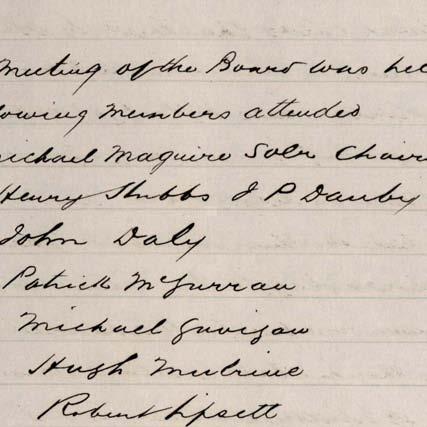 Meeting of the Board was hel
lowing Members attended
ichael Maguire Solr Chair
Henry Stubbs J P Danby
John Daly
Patrick McGurran
Michael Gavigan
Hugh Mulrine
Robert Lipsett